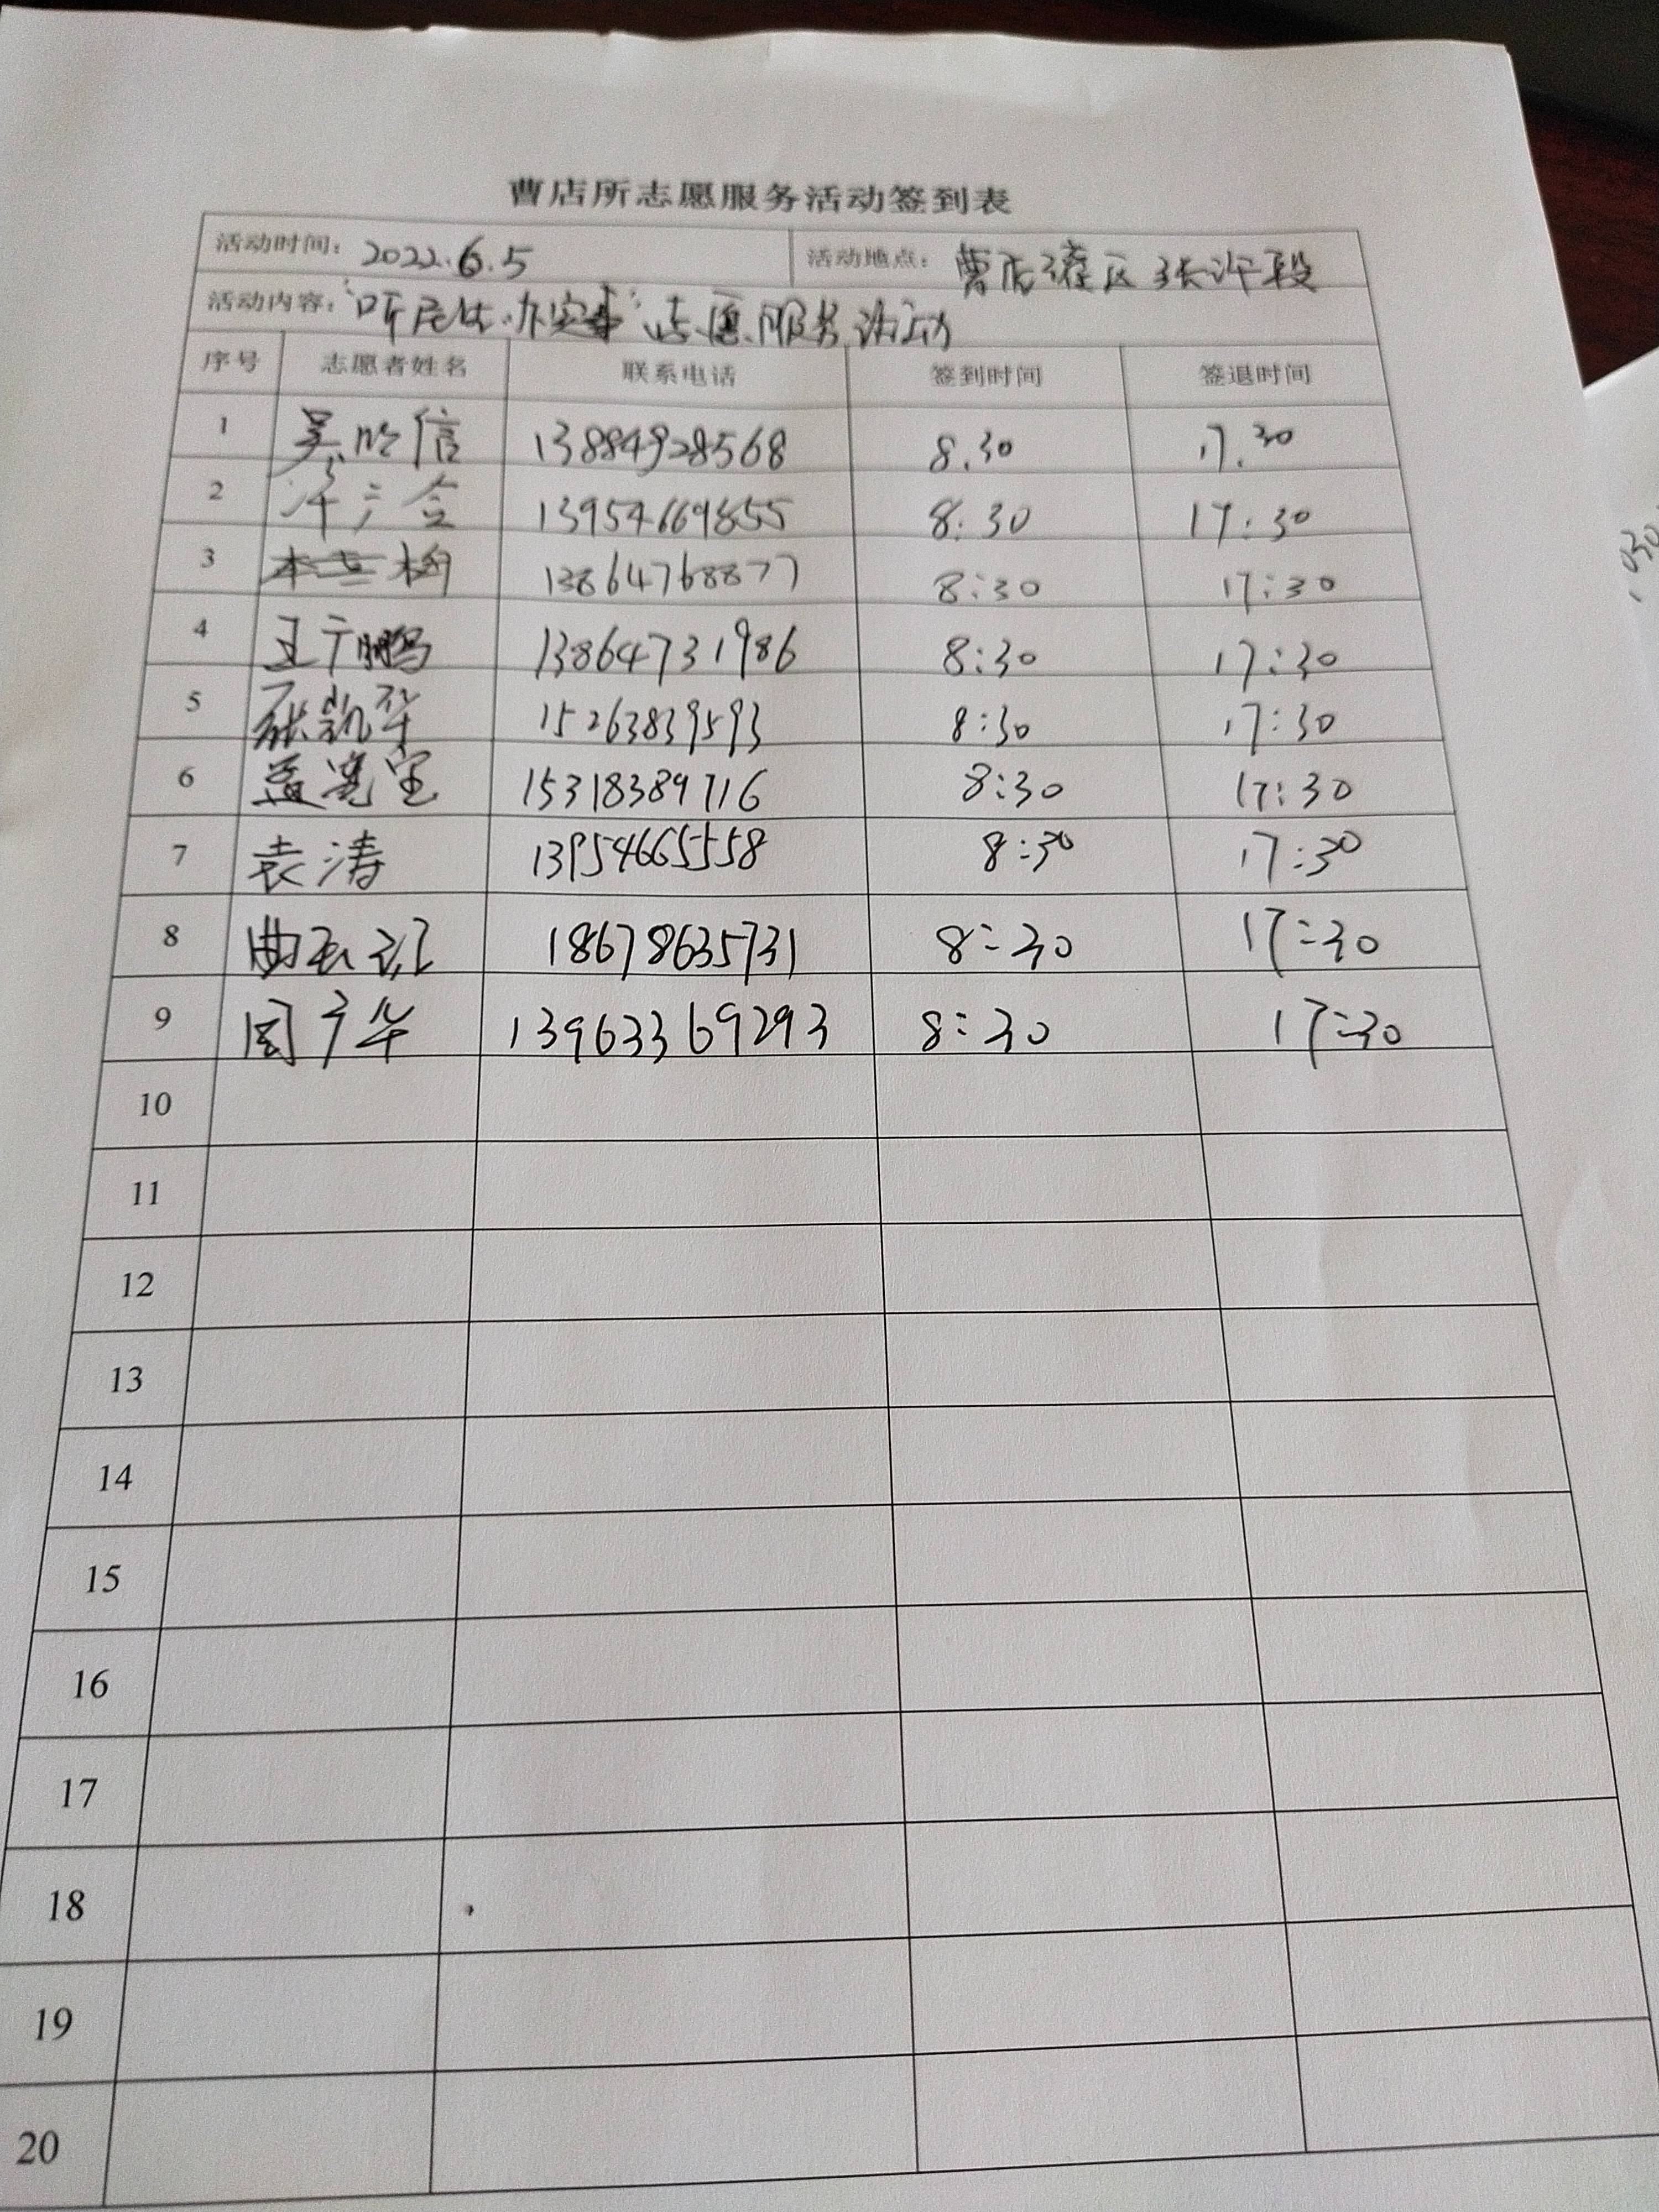 曹店所志愿服务活动签到表
活动时间: 2022.6.5 活动地点: 曹店灌区张许段
活动内容: "听民生.办实事"志愿服务活动
序号 志愿者姓名 联系电话 签到时间 签退时间
1 吴 信 13884928568 8.30 17.30
2 13954669855 8:30 17:30
3 13864768877 8:30 17:30
4 王广鹏 13864731986 8:30 17:30
5 张凯华 15263839593 8:30 17:30
6 孟宪宝 15318389716 8:30 17:30
7 袁涛 13954665558 8:30 17:30
8 曲 18678635731 8:30 17:30
9 周广华 13963369293 8:30 17:30
10
11
12
13
14
15
16
17
18
19
20